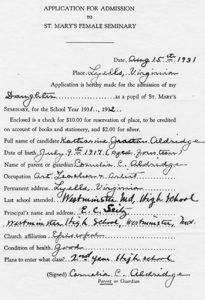 APPLICATION FOR ADMISSION
TO
ST. MARY'S FEMALE SEMINARY
Date, Aug 15th 1931
Place, Lyells, Virginia
Application is hereby made for the admission of my
Daughter as a pupil of ST. MARY'S
SEMINARY, for the School Year 1931..1932.
Enclosed is a check for $10.00 for reservation of place, to be credited
on account of books and stationery, and $2.00 for silver.
Full name of candidate Katharine Grattan Aldridge
Date of birth July 9th 1917 (aged fourteen)
Name of parent or guardian Cornelia C. Aldridge
Occupation Art Teacher & Artist
Permanent address Lyells, Virginia
Last school attended Westminster Md. High School
Principal's name and address C. C. Seitz
Westminster High School, Westminster, Md.
Church affiliation Episcopal
Condition of health Good
Plans to enter what class? 2nd Year High school
(Signed) Cornelia C. Aldridge
Parent or Guardian